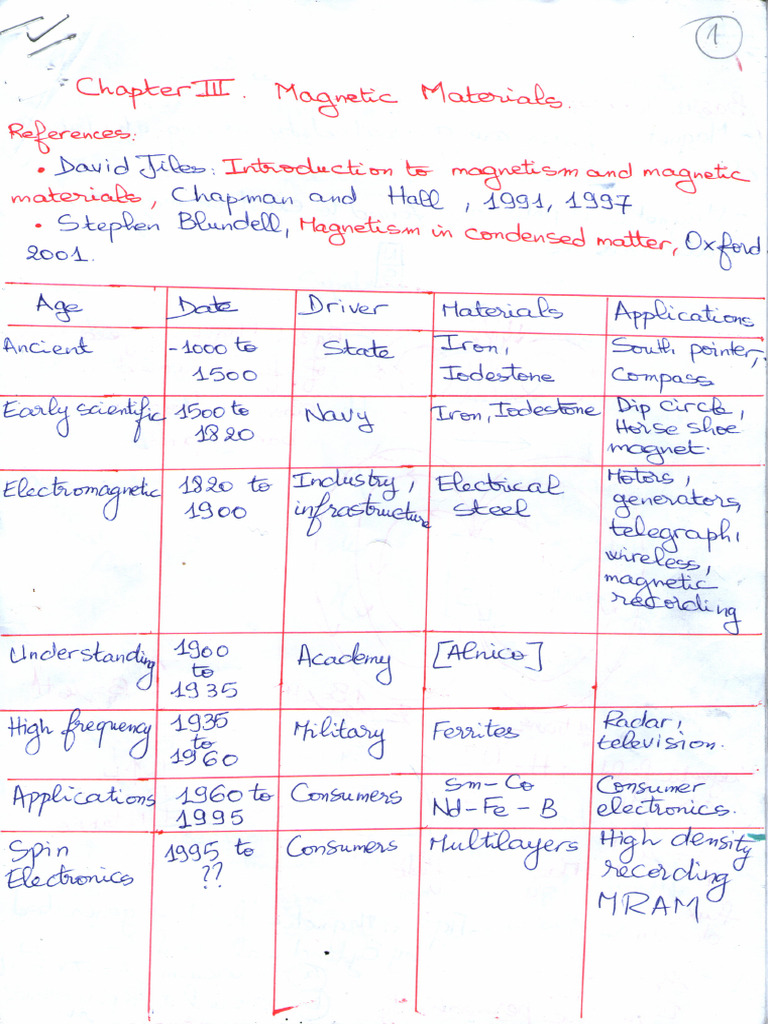 1
Chapter III. Magnetic Materials.
References:
• David Jiles: Introduction to magnetism and magnetic
materials, Chapman and Hall, 1991, 1997
• Stephen Blundell, Magnetism in condensed matter, Oxford
2001.
Age Date Driver Materials Applications
Ancient -1000 to 1500 State Iron, Iodestone South pointer, Compass
Early scientific 1500 to 1820 Navy Iron, Iodestone Dip circle, Horse shoe magnet.
Electromagnetic 1820 to 1900 Industry, infrastructure Electrical steel Motors, generators, telegraph, wireless, magnetic recording
Understanding 1900 to 1935 Academy [Alnico]
High frequency 1935 to 1960 Military Ferrites Radar, television.
Applications 1960 to 1995 Consumers Sm-Co Nd-Fe-B Consumer electronics.
Spin Electronics 1995 to ?? Consumers Multilayers High density recording MRAM